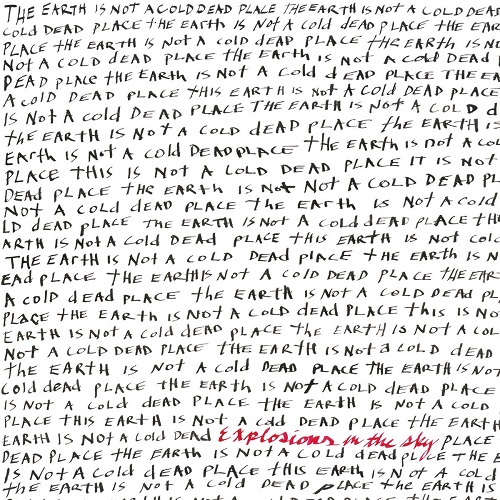 THE EARTH IS NOT A COLD DEAD PLACE THE EARTH IS NOT A COLD DEAD
COLD DEAD PLACE THE EARTH IS NOT A COLD DEAD PLACE THE EAR
PLACE THE EARTH IS NOT A COLD DEAD PLACE THE EARTH IS NO
NOT A COLD DEAD PLACE THE EARTH IS NOT A COLD DEAD
DEAD PLACE THE EARTH IS NOT A COLD DEAD PLACE THE EA
A COLD DEAD PLACE THIS EARTH IS NOT A COLD DEAD PLACE
IS NOT A COLD DEAD PLACE THE EARTH IS NOT A COLD d
the EARTH IS NOT A COLD dEAD PLACE the EARTH IS
EARTH IS NOT A COLD DEAD PLACE THE EARTH IS NOT A COL
PLACE THIS IS NOT A COLD DEAD PLACE IT IS NOT
DEAD PLACE THE EARTH IS NOT NOT A COLD DEAD PL
NOT A COLD dEAD PLACE the EARTH IS NOT A COLD
LD DEAD PLACE THE EARTH IS NOT A COLD dEAD PLACE TH
ARTH IS NOT A COLD DEAD PLACE THIS EARTH IS NOT COL
THE EARTH IS NOT A COLD DEAD PLACE THE EARTH IS N
EAD PLACE THE EARTH IS NOT A COLD DEAD PLACE THE EAR
A COLD dEAD PLACE the EARTH IS NOT A COLD DEAD PL
PLACE THE EARTH IS NOT A COLD DEAD PLACE this IS NO
EARTH IS NOT A COLD DEAD PLACE THE EARTH IS NOT A COL
NOT A COLD DEAD PLACE THE EARTH IS NOT A COLD DEAD
the EARTH IS NOT A COLD DEAD PLACE THE EARTH IS NOT
COLD dEAD PLACE THE EARTH IS NOT A COLD DEAD PLACE
IS NOT A COLD dEAD PLACE THE EARTH IS NOT A COLD
PLACE THIS EARTH IS NOT A COLD DEAD PLACE THE EARTH
EARTH IS NOT A COLD DEAD Explosions in the sky PLACE
DEAD PLACE THE EARTH IS NOT A COLD dEAD PLACE THE EA
IS NOT A COLD dEAD PLACE THIS EARTH IS NOT A COLD
the EARTH IS NOT A COLD DEAD PLACE THE EARTH IS